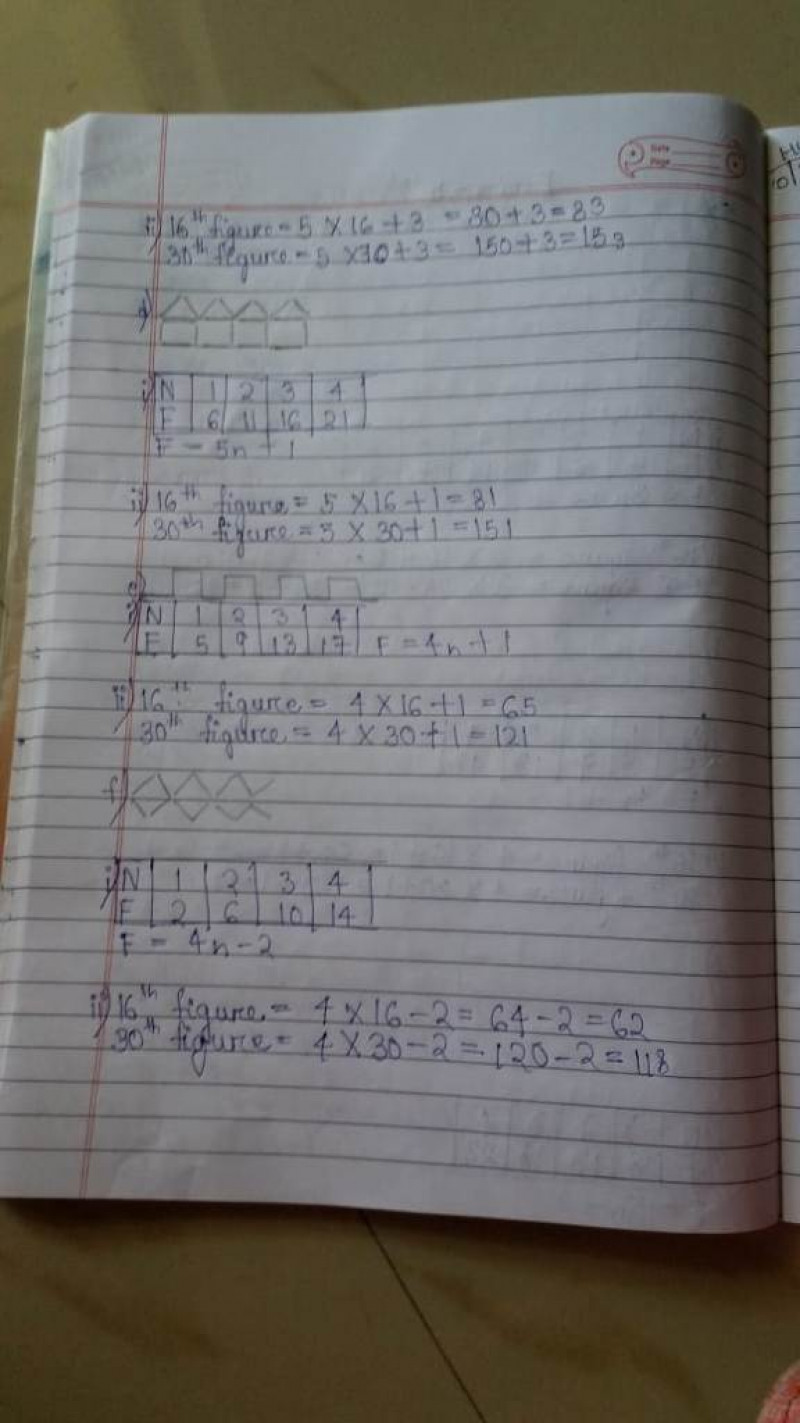 Date
Page
ii) 16th figure = 5 × 16 + 3 = 80 + 3 = 83
30th figure = 5 × 30 + 3 = 150 + 3 = 153
d)
i) N 1 2 3 4
F 6 11 16 21
F = 5n + 1
ii) 16th figure = 5 × 16 + 1 = 81
30th figure = 5 × 30 + 1 = 151
e)
i) N 1 2 3 4
F 5 9 13 17 F = 4n + 1
ii) 16th figure = 4 × 16 + 1 = 65
30th figure = 4 × 30 + 1 = 121
f)
i) N 1 2 3 4
F 2 6 10 14
F = 4n - 2
ii) 16th figure = 4 × 16 - 2 = 64 - 2 = 62
30th figure = 4 × 30 - 2 = 120 - 2 = 118